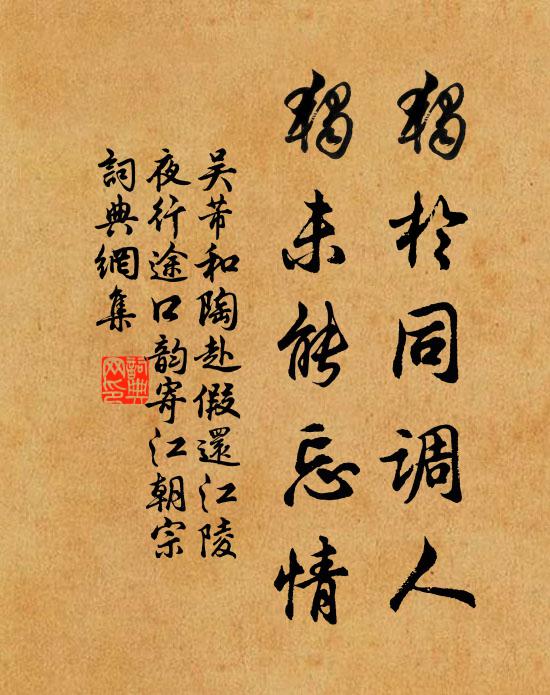 獨於同调人
獨未能忘情
吴芾和陶赴假還江陵
夜行途口韵寄江朝宗
詞典網集
詞典
网印